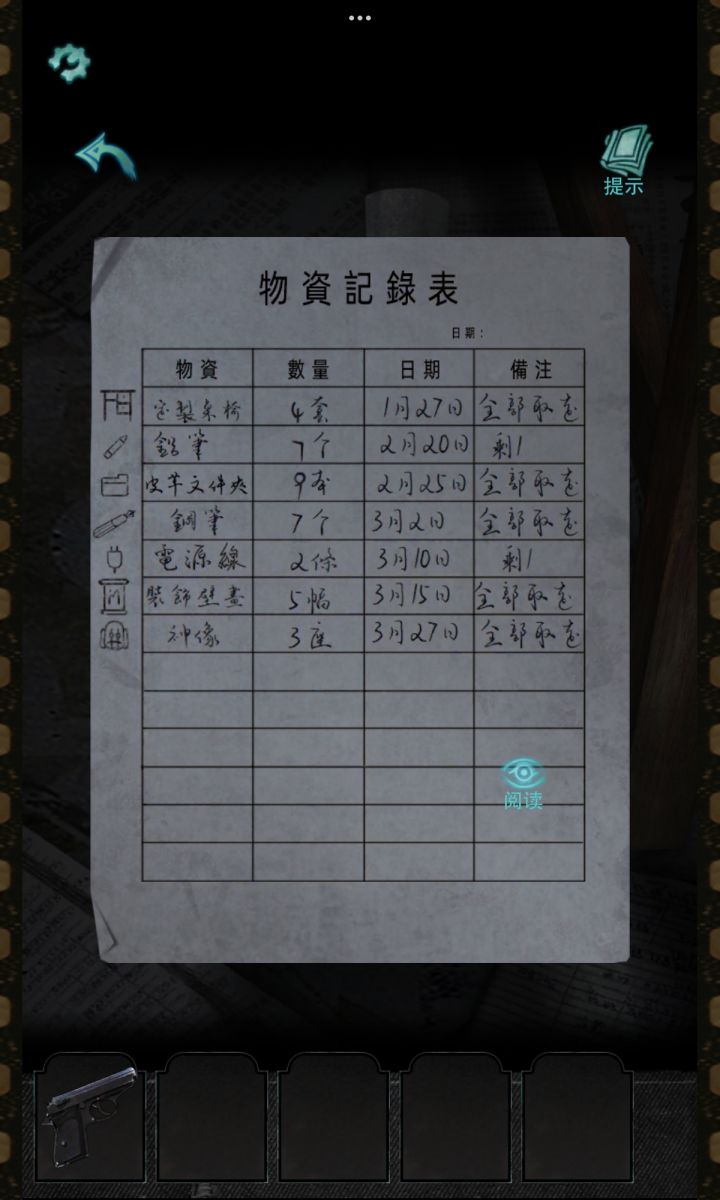 提示
物資記錄表
日期：
物資 數量 日期 備注
定製桌椅 4套 1月27日 全部取走
鉛筆 7个 2月20日 剩1
皮革文件夾 9本 2月25日 全部取走
鋼筆 7个 3月2日 全部取走
電源線 2條 3月10日 剩1
裝飾壁畫 5幅 3月15日 全部取走
神像 3座 3月27日 全部取走
阅读